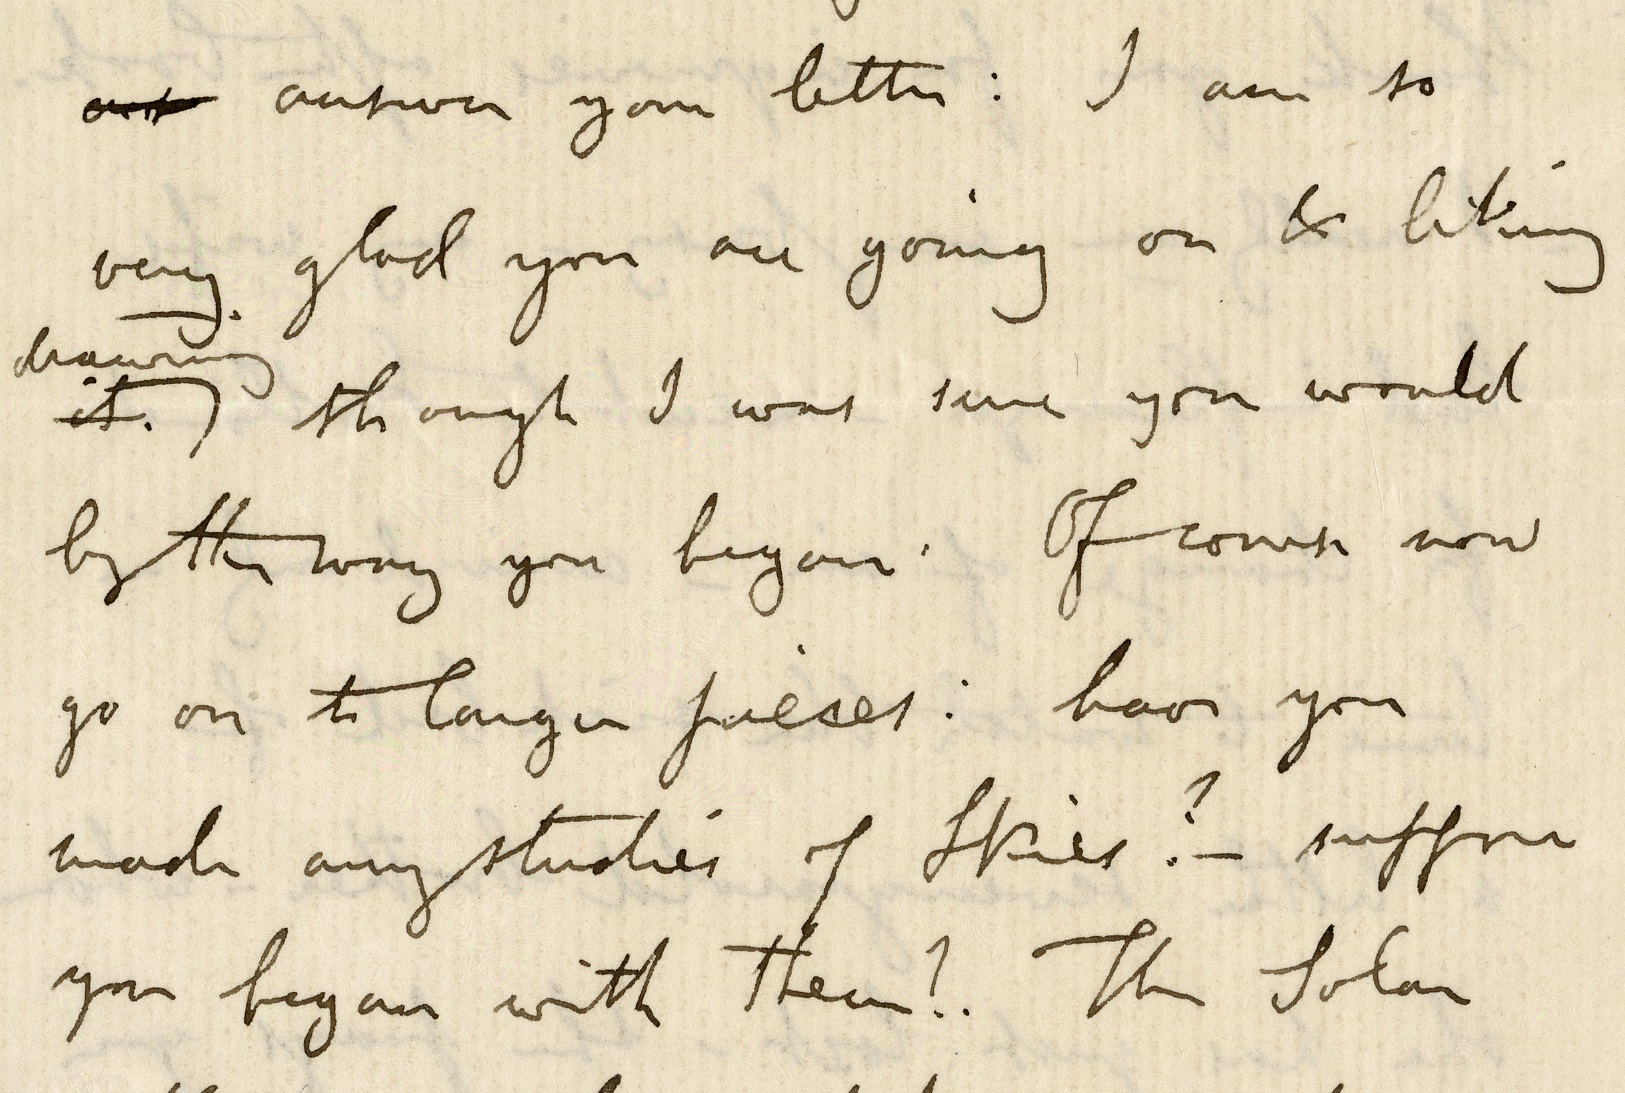 answer your letter: I am so
very glad you are going on & liking
drawing
it.) though I was sure you would
by the way you began. Of course now
go on to larger pieces: have you
made any studies of Skies? — suppose
you began with them!. The Solar